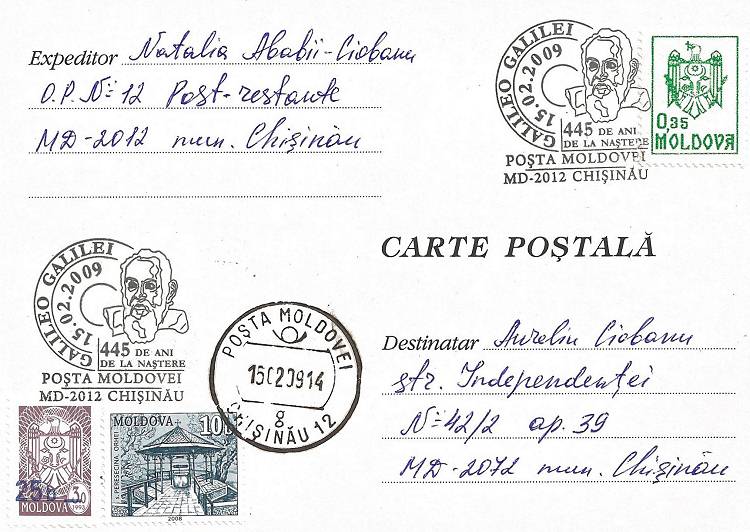 Expeditor Natalia Ababii-Ciobanu
O.P. Nº 12 Post-restante
MD-2012 mun. Chişinău
GALILEO GALILEI
15.02.2009
445 DE ANI
DE LA NAŞTERE
POŞTA MOLDOVEI
MD-2012 CHIŞINĂU
0,35
MOLDOVA
CARTE POŞTALĂ
GALILEO GALILEI
15.02.2009
445 DE ANI
DE LA NAŞTERE
POŞTA MOLDOVEI
MD-2012 CHIŞINĂU
POŞTA MOLDOVEI
15020914
8
CHIŞINĂU 12
Destinatar Aureliu Ciobanu
str. Independenţei
Nº 42/2 ap. 39
MD-2072 mun. Chişinău
25
MOLDOVA
MOLDOVA
2008